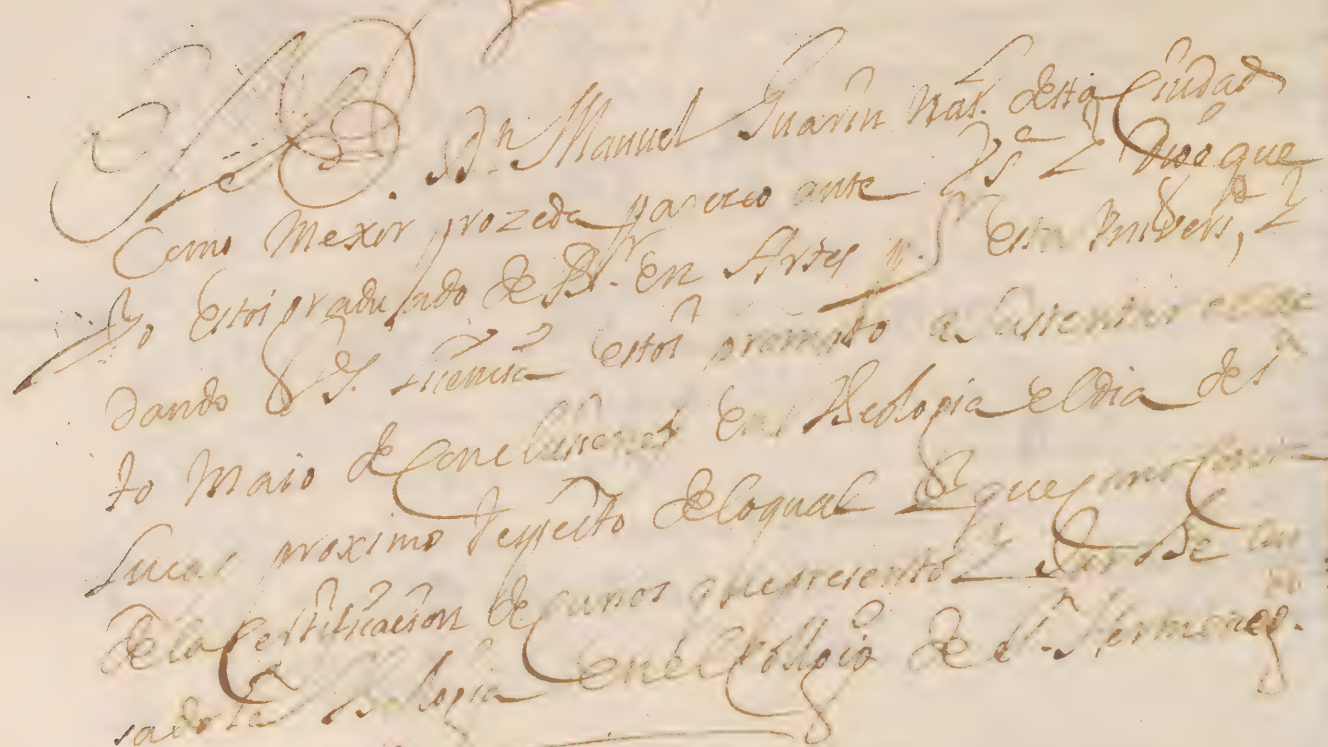 Dn. Manuel Guarin Nat. desta Ciudad
Como Mexor prozeda paresco ante Vs.e Y Digo que
Yo estoi graduado de Br. en Artes pr. esta Univers.d, Y
dando Vs. licencia estoi prompto a sustentar
to Maio de Conclusiones en Theologia el dia de S
Lucas proximo respecto de lo qual y que como
de la Certificacion de cursos que presento Y
sado la Theologia en el Collegio de Sn. Hermeneg.do